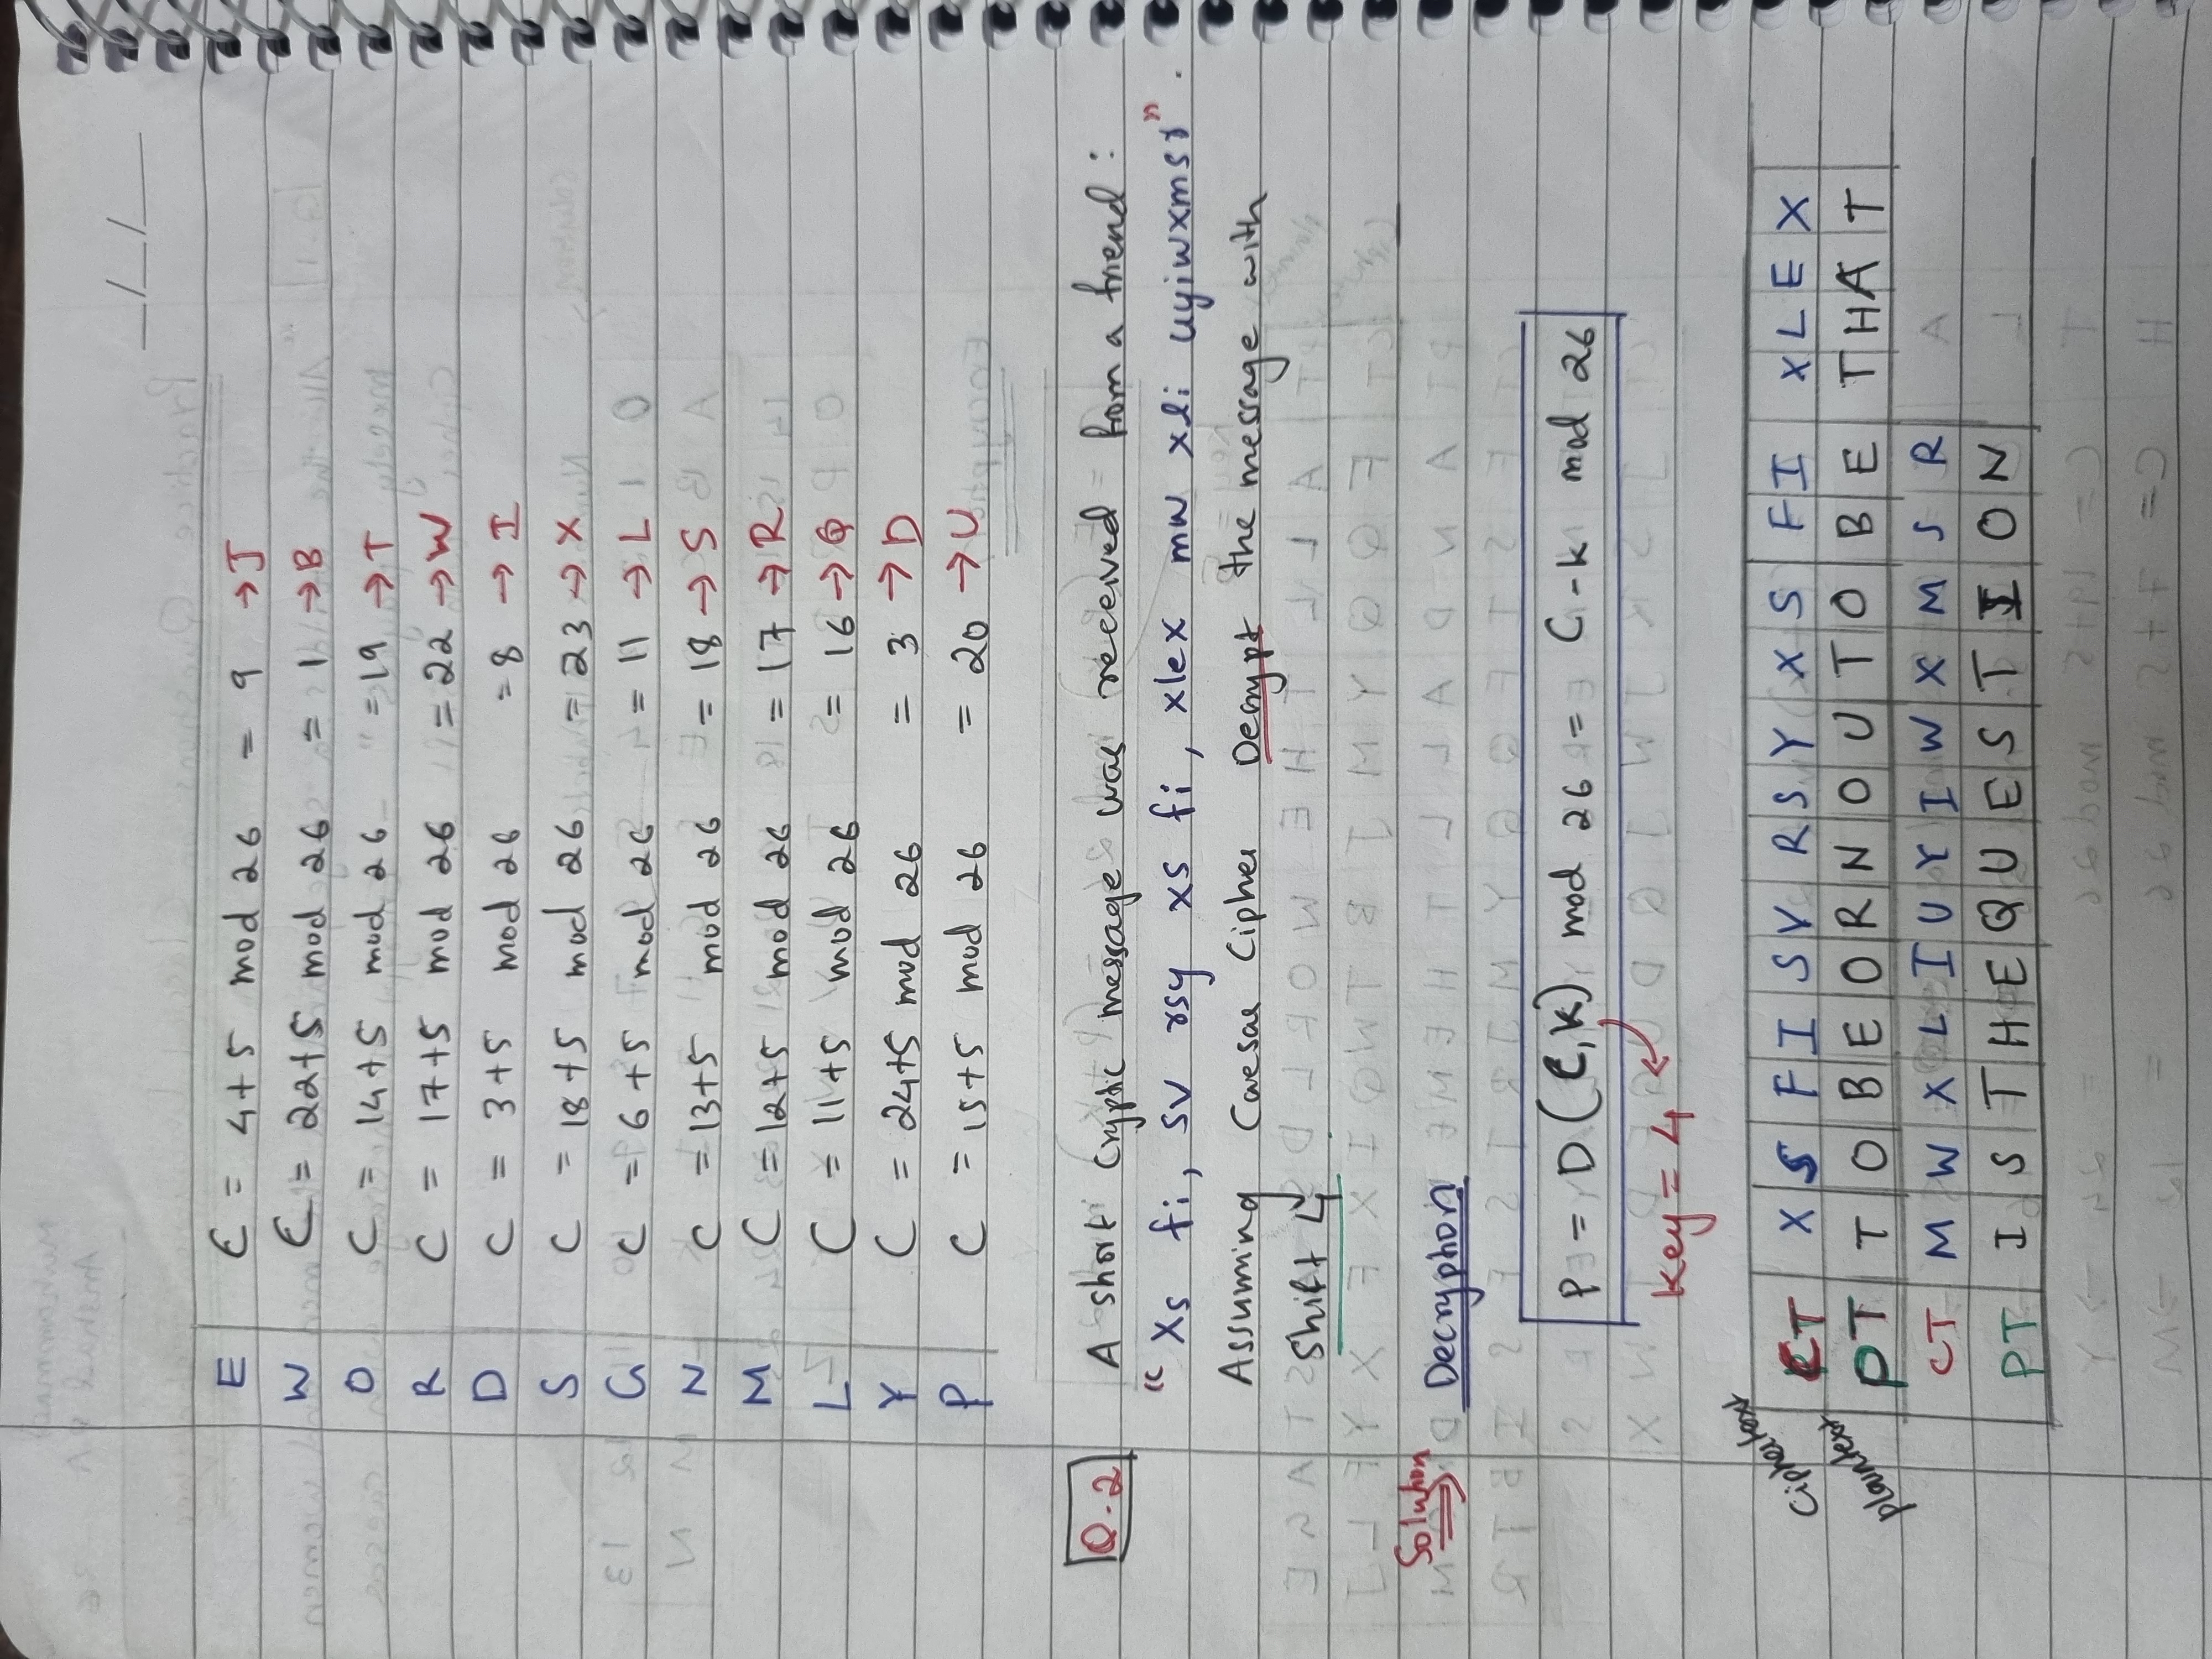 __/__/____
E C = 4+5 mod 26 = 9 → J
W C = 22+5 mod 26 = 1 → B
O C = 14+5 mod 26 = 19 → T
R C = 17+5 mod 26 = 22 → W
D C = 3+5 mod 26 = 8 → I
S C = 18+5 mod 26 = 23 → X
G C = 6+5 mod 26 = 11 → L
N C = 13+5 mod 26 = 18 → S
M C = 12+5 mod 26 = 17 → R
L C = 11+5 mod 26 = 16 → Q
Y C = 24+5 mod 26 = 3 → D
P C = 15+5 mod 26 = 20 → U
Q.2 A short Cryptic message was received from a friend :
"Xs fi, sv rsy xs fi, xlex mw xli uyiwxmsr".
Assuming Caesar Cipher Decrypt the message with
Shift 4
Solution ⇒ Decryption
P = D(C,K) mod 26 = C-k mod 26
Key = 4
Ciphertext CT X S F I S V R S Y X S F I X L E X
plaintext PT T O B E O R N O U T O B E T H A T
CT M W X L I U Y I W X M S R
PT I S T H E Q U E S T I O N